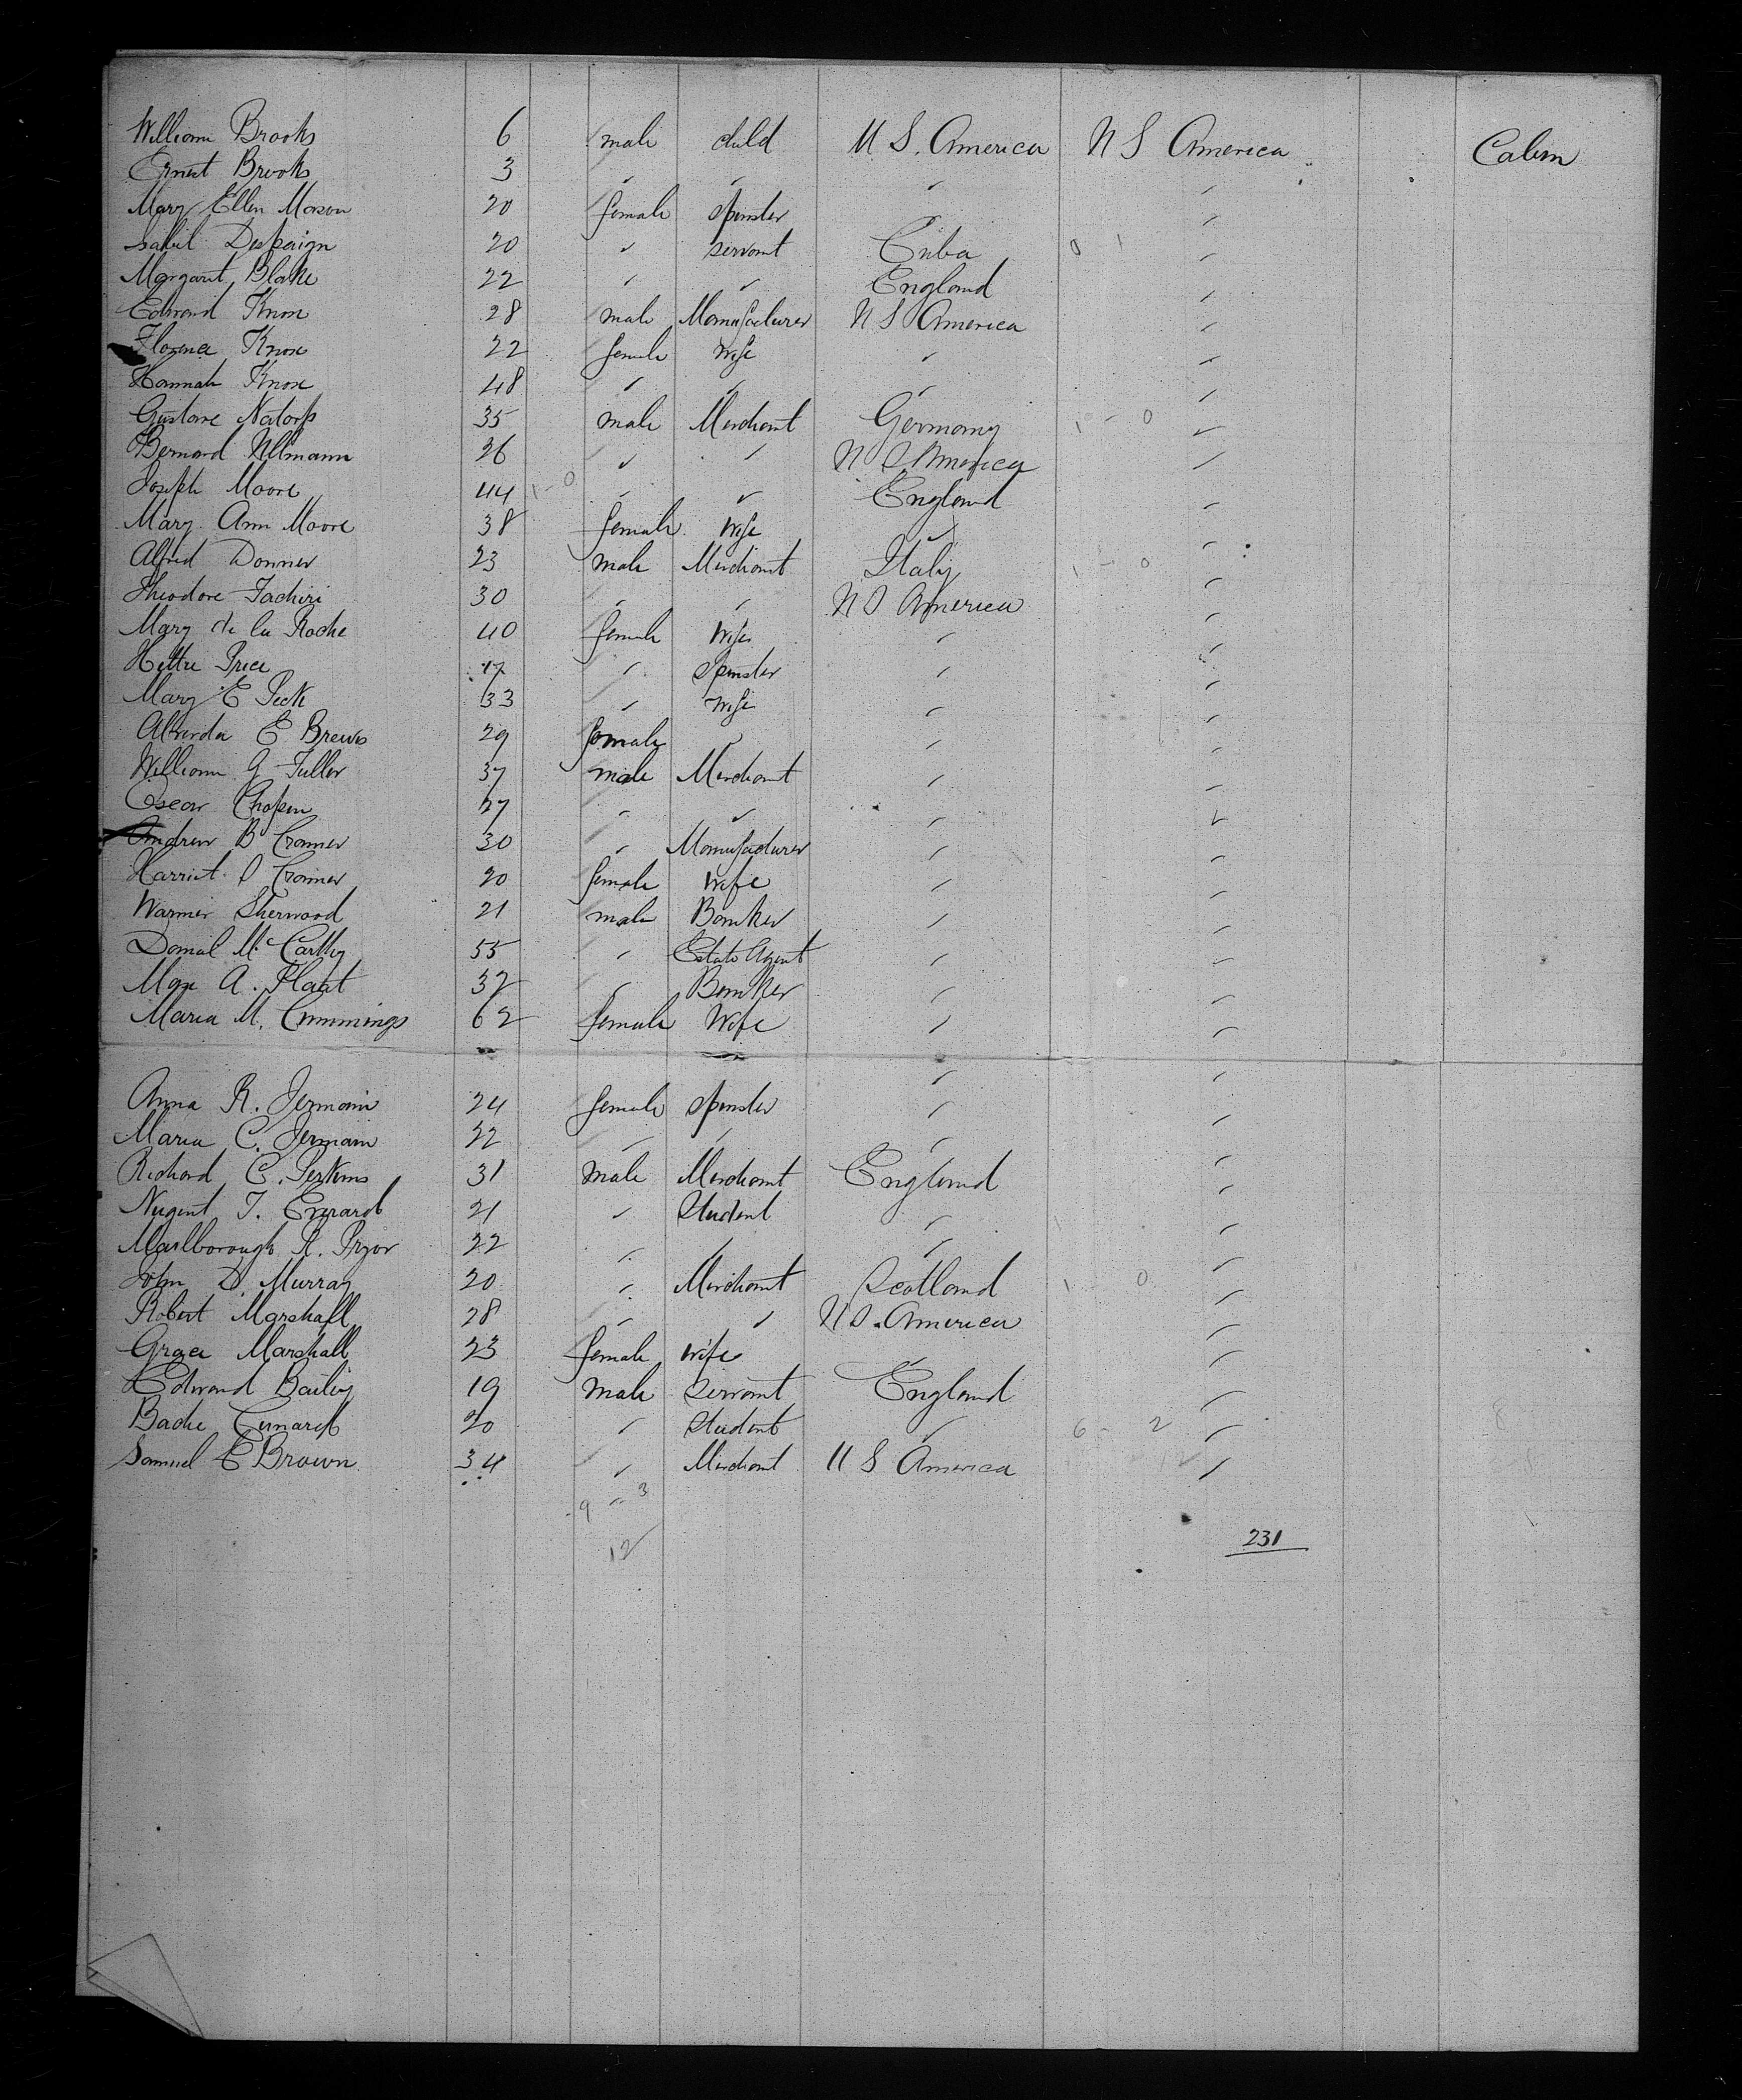 William Brooks 6 male child U.S. America U S America Cabin
Ernest Brooks 3 " " " "
Mary Ellen Mason 20 female Spinster "
Isabil Despaign 20 " servant Cuba 0 1 "
Margaret Blake 22 " " England "
Edward Knox 28 male Manufacturer U S America "
Florence Knox 22 female Wife " "
Hannah Knox 48 " " " "
Gustave Natorp 35 male Merchant Germany 1 - 0 "
Bernard Ullmann 26 " " U S America "
Joseph Moore 44 1 - 0 " " England "
Mary Ann Moore 38 female Wife " "
Alfred Donner 23 male Merchant Italy 1 - 0 "
Theodore Fachiri 30 " " U S America "
Mary de la Roche 40 female Wife " "
Hettie Price 17 " Spinster " "
Mary E Peck 33 " Wife " "
E Brewes 29 female " " "
William G Fuller 37 male Merchant " "
Oscar Chopin 27 " " " "
Andrew B Cramer 30 " Manufacturer " "
Harriet S Cramer 20 female Wife " "
Warner Sherwood 21 male Banker " "
Danial McCarthy 55 " Estate Agent " "
Max A. Plaat 32 " Banker " "
Maria M. Cummings 62 female Wife " "
Anna R. Jermain 24 female Spinster " "
Maria C. Jermain 22 " " " "
Richard C. Perkins 31 male Merchant England "
Nugent T. Everard 21 " Student " "
Marlborough R. Pryor 22 " " " "
John D. Murray 20 " Merchant Scotland 1 0 "
Robert Marshall 28 " " U S. America "
Grace Marshall 23 female Wife " "
Edward Bailey 19 male Servant England "
Bache Cunard 20 " Student " 6 - 2 "
Samuel E Brown 34 " Merchant U S America "
9 - 3
12
231